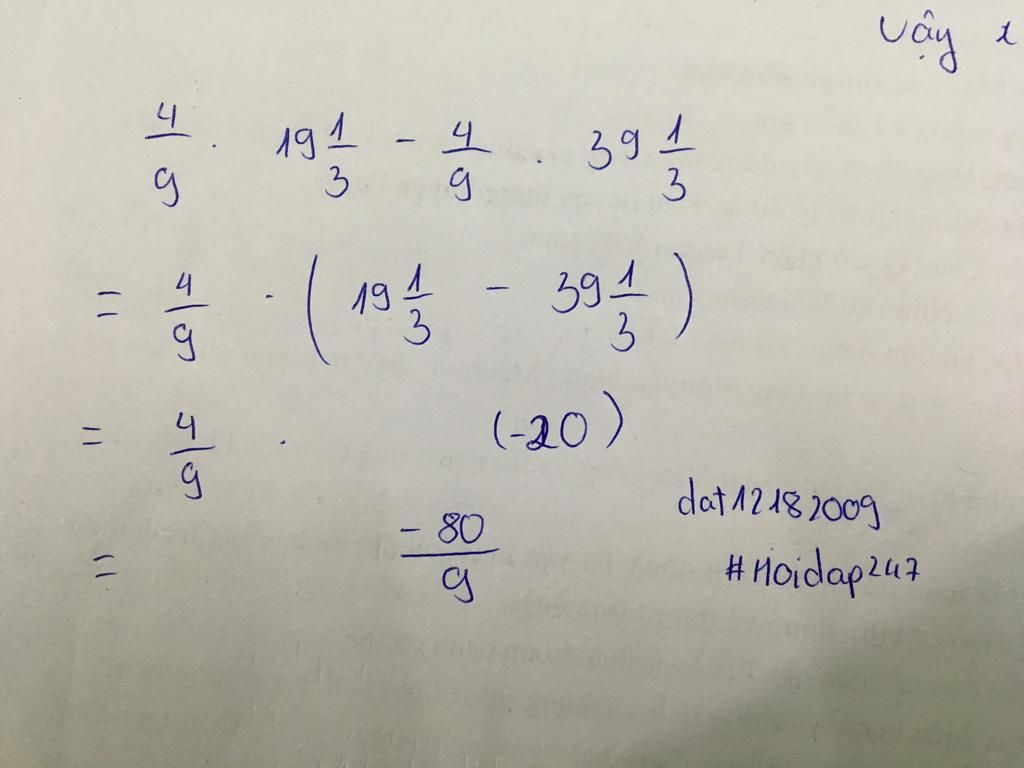 Vậy x
4/9 . 19 1/3 - 4/9 . 39 1/3
= 4/9 . ( 19 1/3 - 39 1/3 )
= 4/9 . (-20)
= -80/9
dat12182009
#Hoidap247